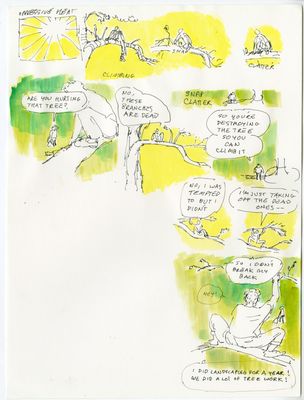 OPPRESSIVE HEAT
SNAP
CLIMBING
CLATTER
ARE YOU HURTING
THAT TREE?
NO,
THESE
BRANCHES
ARE DEAD
SNAP
CLATTER
SO YOU'RE
DESTROYING
THE TREE
SO YOU
CAN
CLIMB IT
NO, I WAS
TEMPTED
TO BUT I
DIDN'T
I'M JUST TAKING
OFF THE DEAD
ONES—
SO I DON'T
BREAK MY
BACK
HEY!
I DID LANDSCAPING FOR A YEAR!
WE DID A LOT OF TREE WORK!